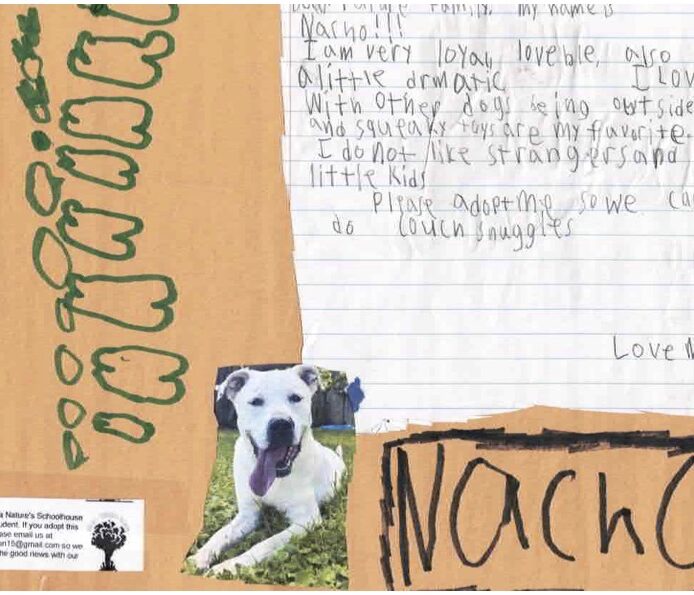 Dear Future Family, my name is
Nacho!!!
I am very loyal, loveble, also
a little drmatic I LOV
With other dogs being outside
and squeaky toys are my fiavorite
I do not like strangers and
little kids
Please adopt me so we ca
do couch snuggles
Love N
Nacho
a Nature's Schoolhouse
udent. If you adopt this
ase email us at
on15@gmail.com so we
he good news with our